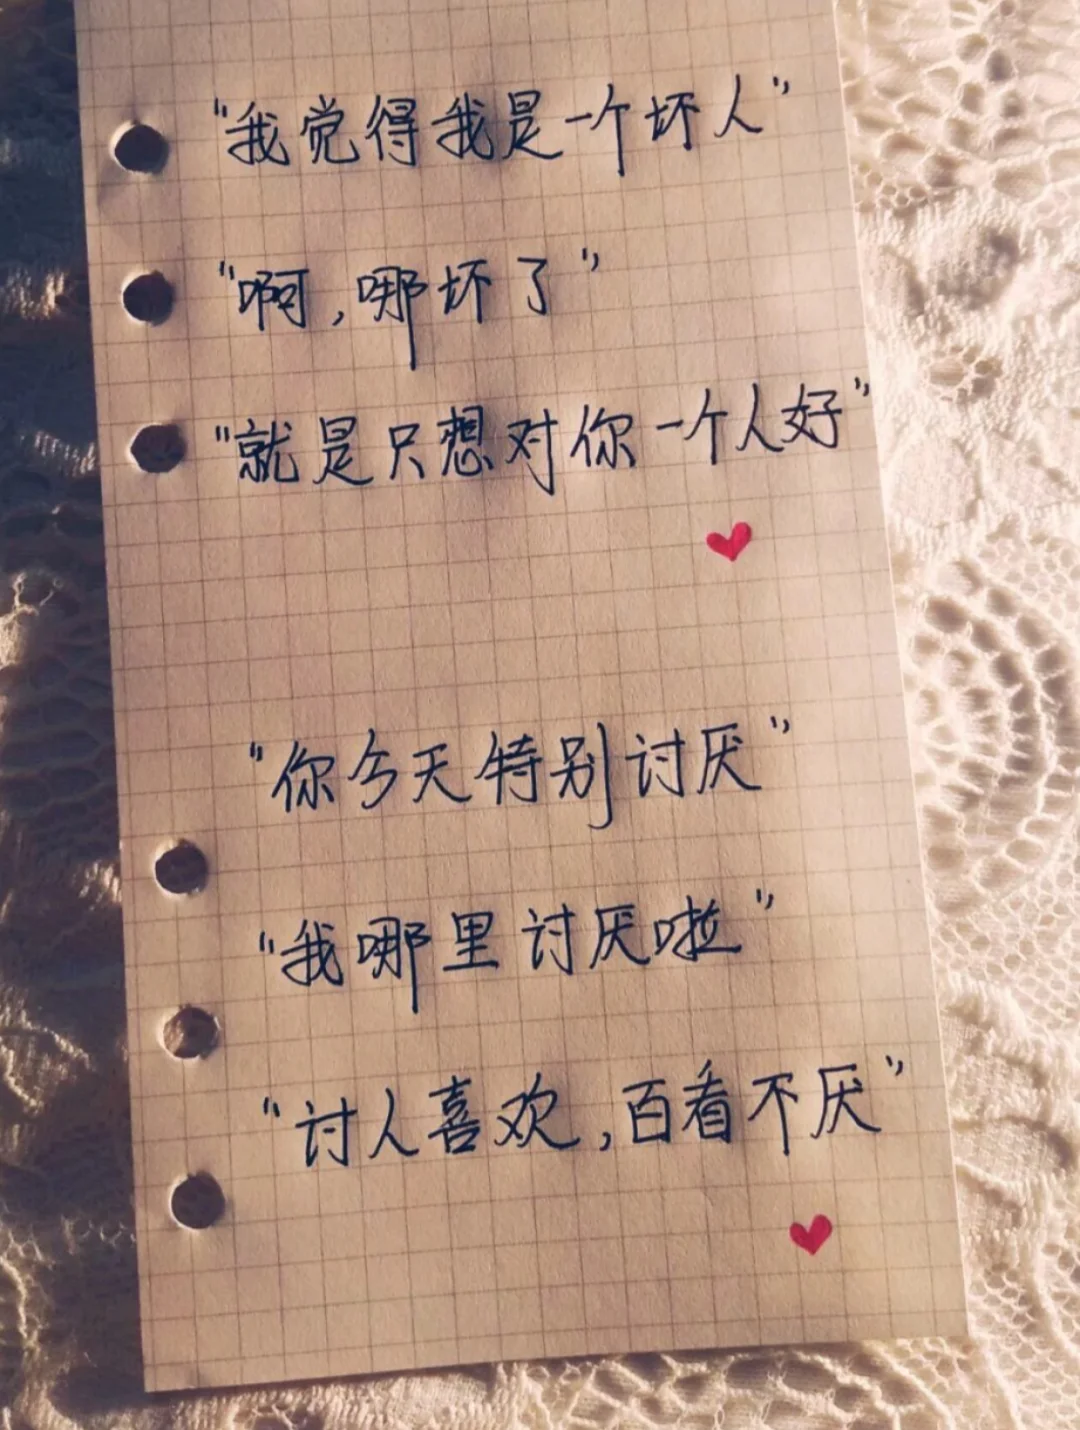 “我觉得我是一个坏人”
“啊,哪坏了”
“就是只想对你一个人好”
“你今天特别讨厌”
“我哪里讨厌啦”
“讨人喜欢,百看不厌”